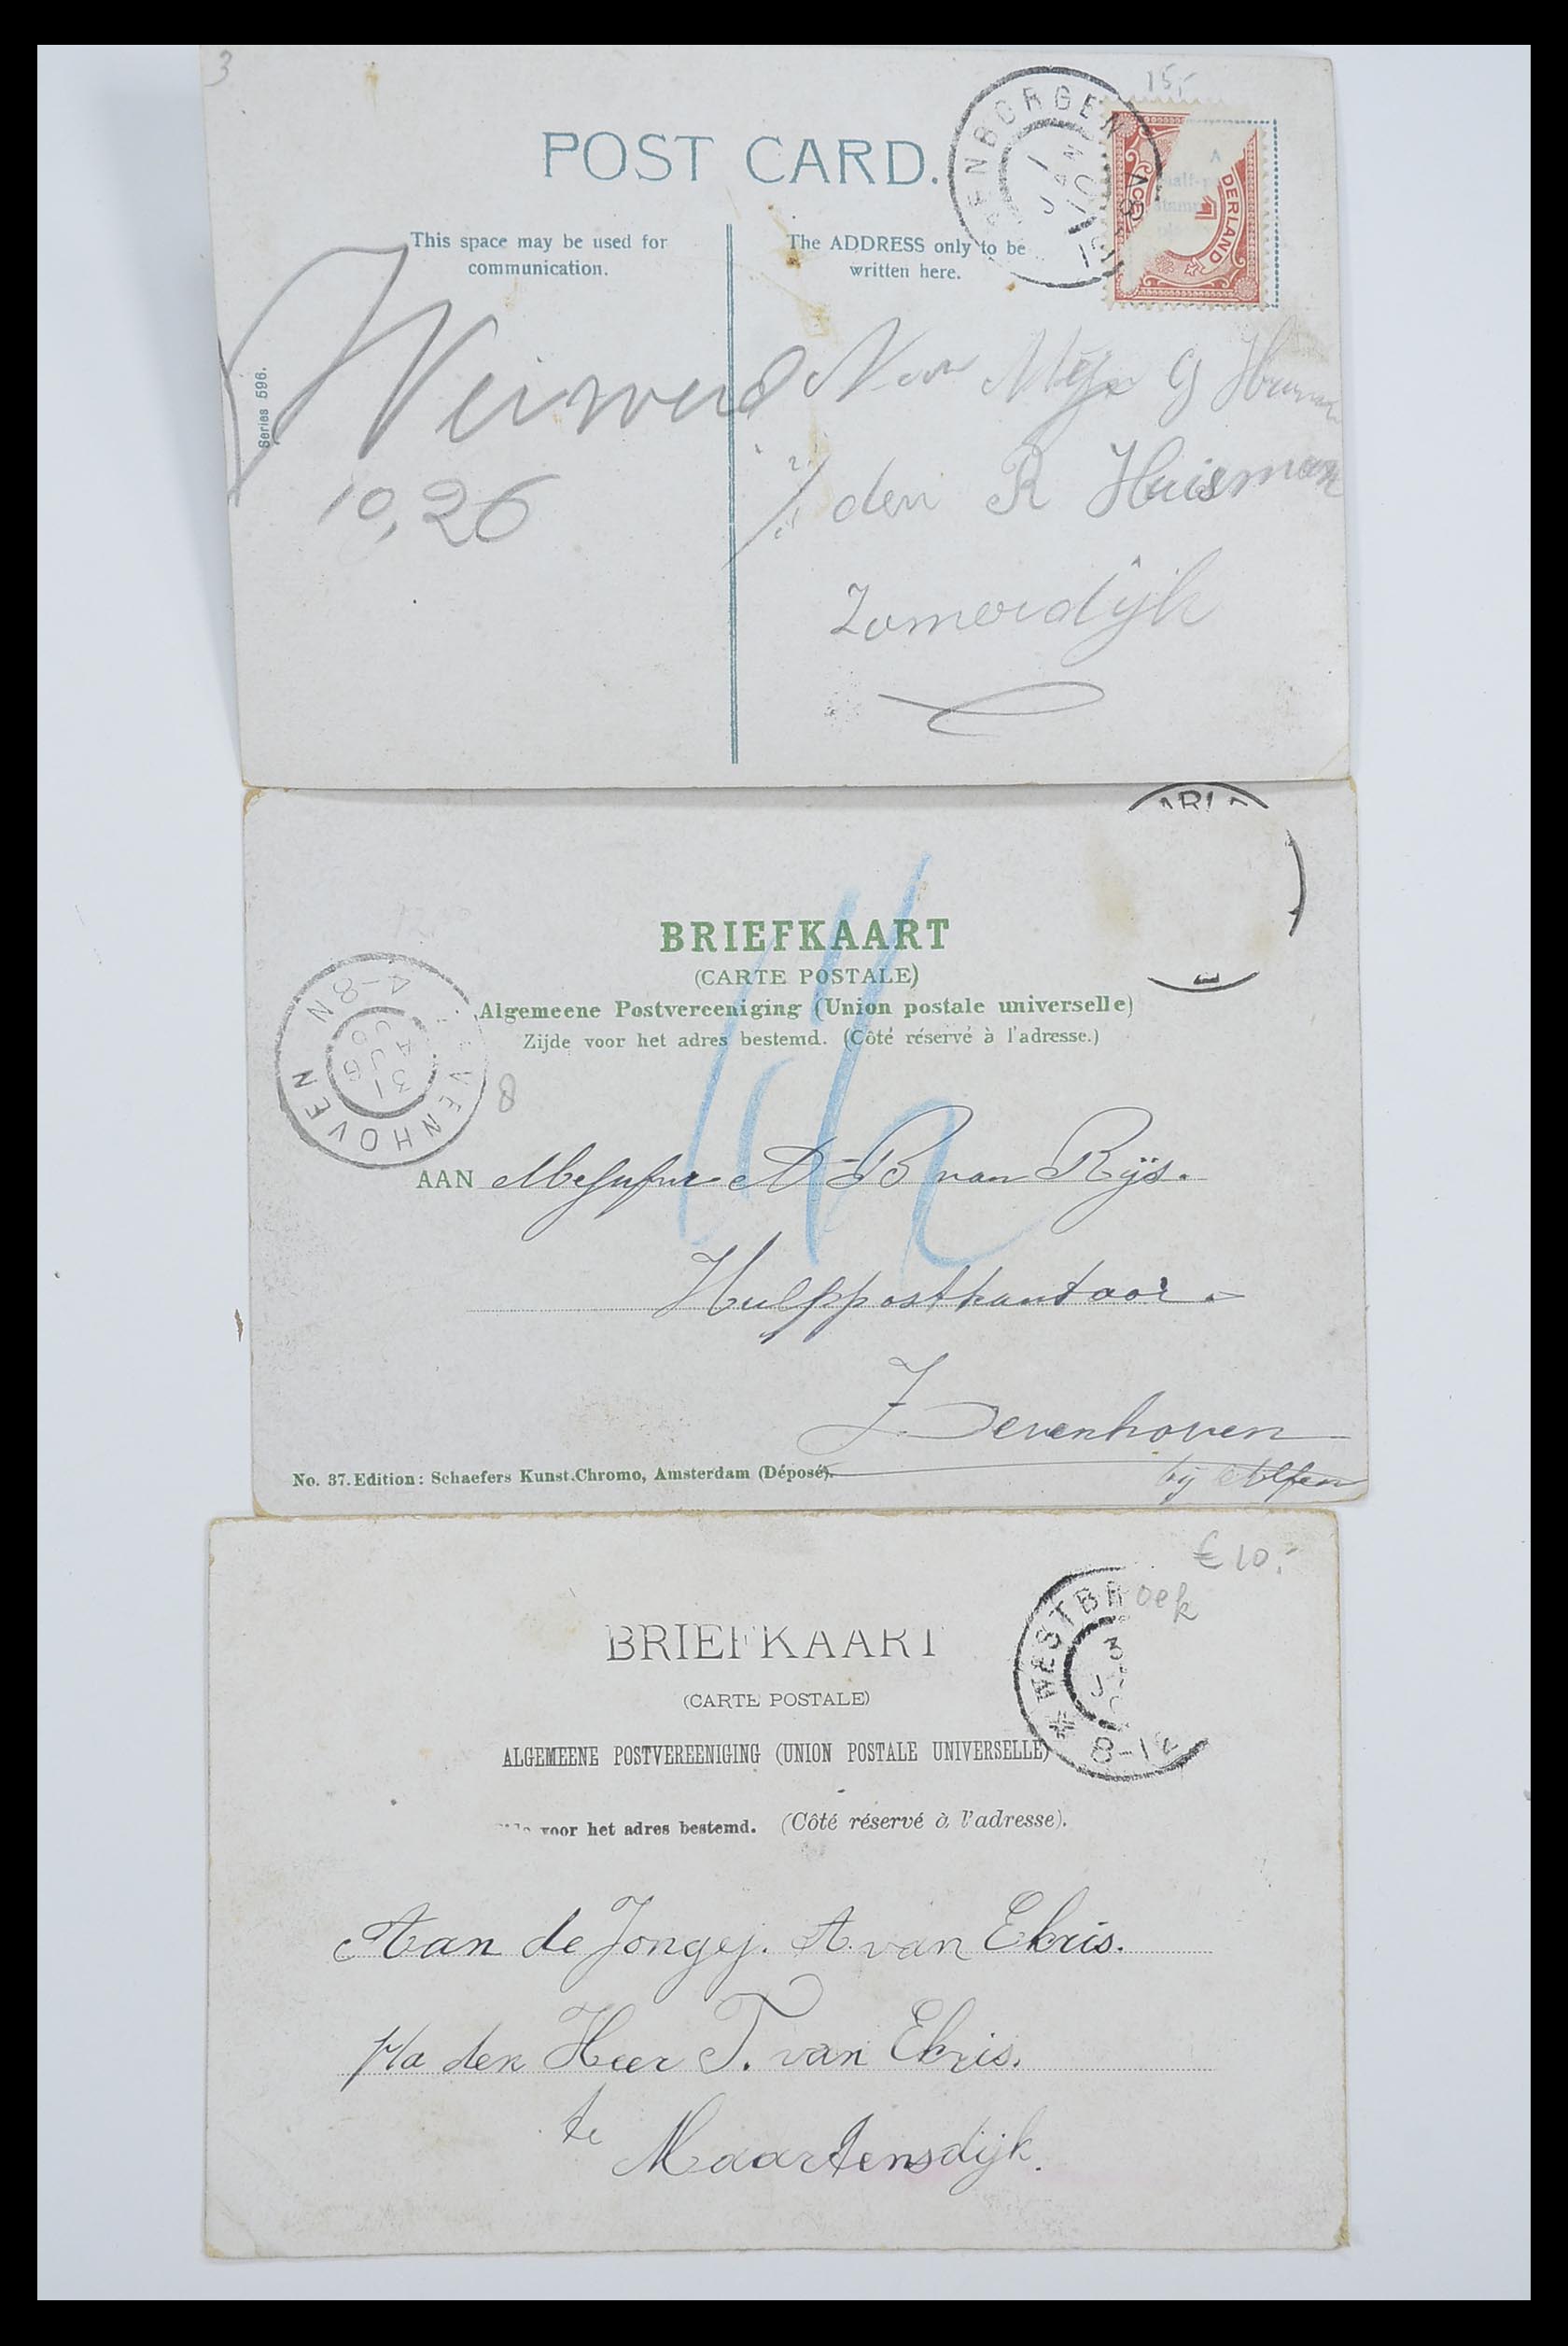 3
15,-
POST CARD.
ENBORGEN
1 JAN 10
This space may be used for
communication.
The ADDRESS only to be
written here.
A
half-
stamp
DERLAND
Series 596.
10,26
den R Huisman
Zomerdijk
ARLA
BRIEFKAART
(CARTE POSTALE)
Algemeene Postvereeniging (Union postale universelle)
Zijde voor het adres bestemd. (Côté réservé à l'adresse.)
VENHOVEN
4-8N
31
8
AAN Mejufvr. A B van Rijs.
Hulppostkantoor.
Zevenhoven
bij Alfen
No. 37. Edition: Schaefers Kunst.Chromo, Amsterdam (Déposé).
€ 10:-
WESTBRoek
3
8-12
BRIEFKAART
(CARTE POSTALE)
ALGEMEENE POSTVEREENIGING (UNION POSTALE UNIVERSELLE)
voor het adres bestemd. (Côté réservé à l'adresse).
Aan de Jongej. A. van Ekris.
p/a den Heer T. van Ekris.
te
Maartensdijk.